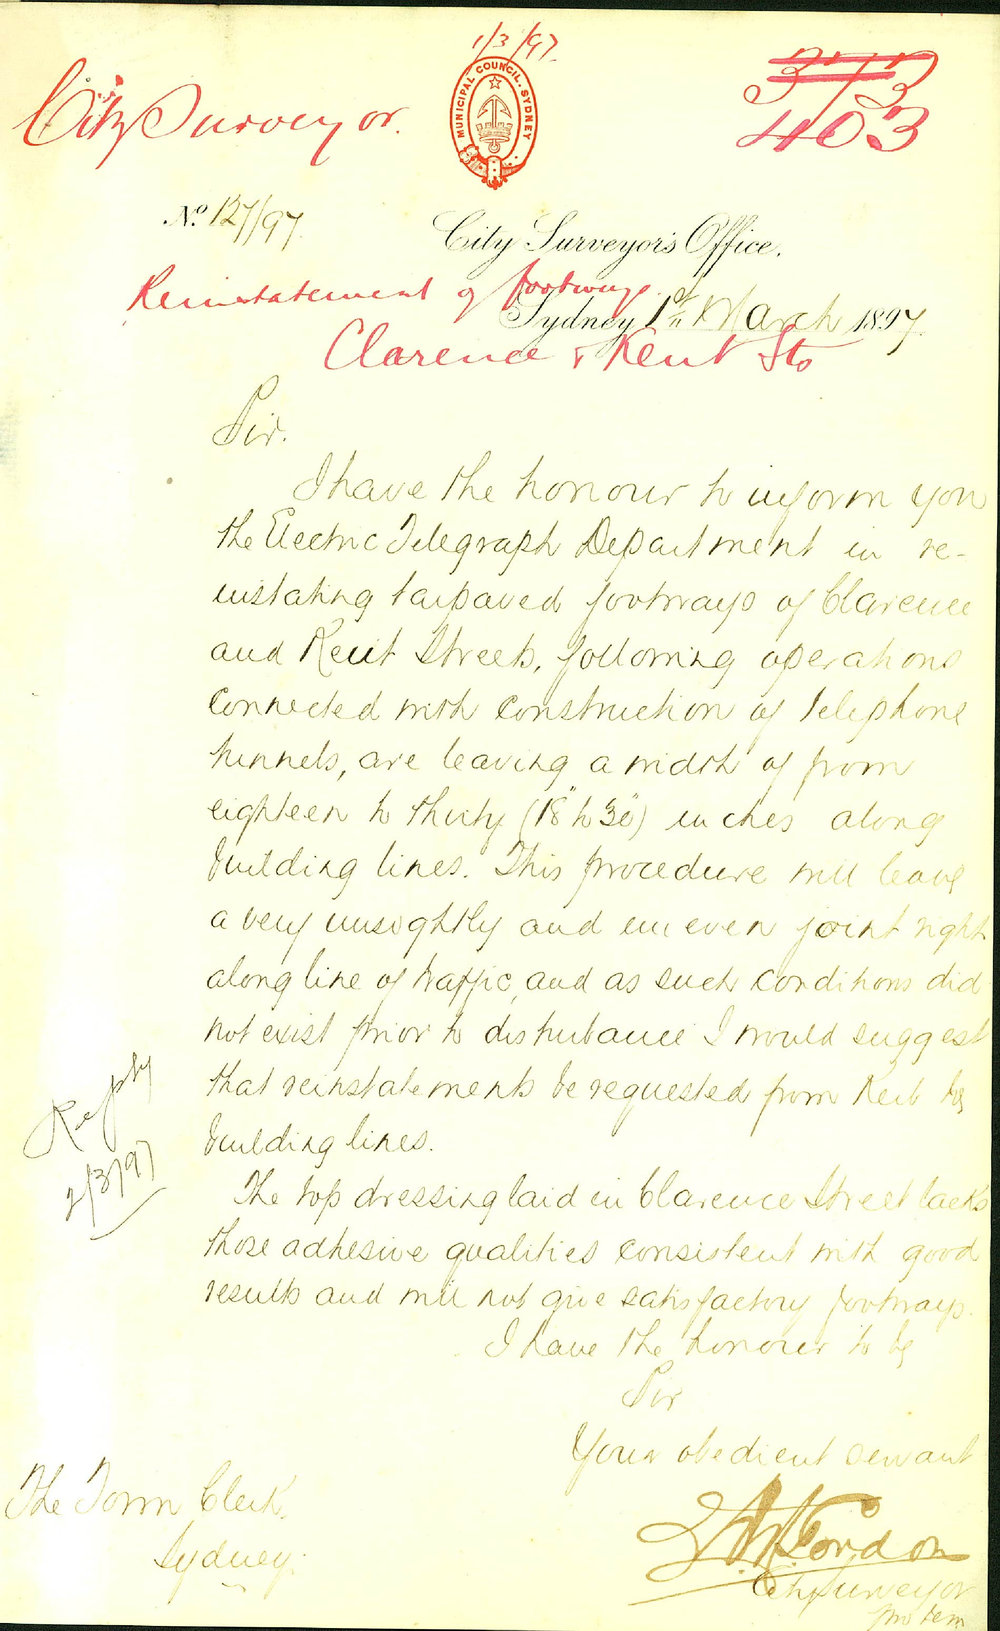 1/3/97
City Surveyor.
MUNICIPAL COUNCIL. SYDNEY
373
403
No. 127/97.
City Surveyor's Office.
Reinstatement of footways.
Sydney 1st March 1897.
Clarence & Kent Sts
Sir.
I have the honour to inform you
the Electric Telegraph Department in re-
instating tarpaved footways of Clarence
and Kent Streets, following operations
connected with construction of telephone
tunnels, are leaving a width of from
eighteen to thirty (18" to 30") inches along
building lines. This procedure will leave
a very unsightly and uneven joint right
along line of traffic, and as such conditions did
not exist prior to disturbance I would suggest
that reinstatements be requested from Kerb to
building lines.
Reply
2/3/97
The top dressing laid in Clarence Street lacks
those adhesive qualities consistent with good
results and will not give satisfactory footways.
I have the honour to be
Sir
Your obedient servant
The Town Clerk.
Sydney.
Gordon
City Surveyor
pro tem